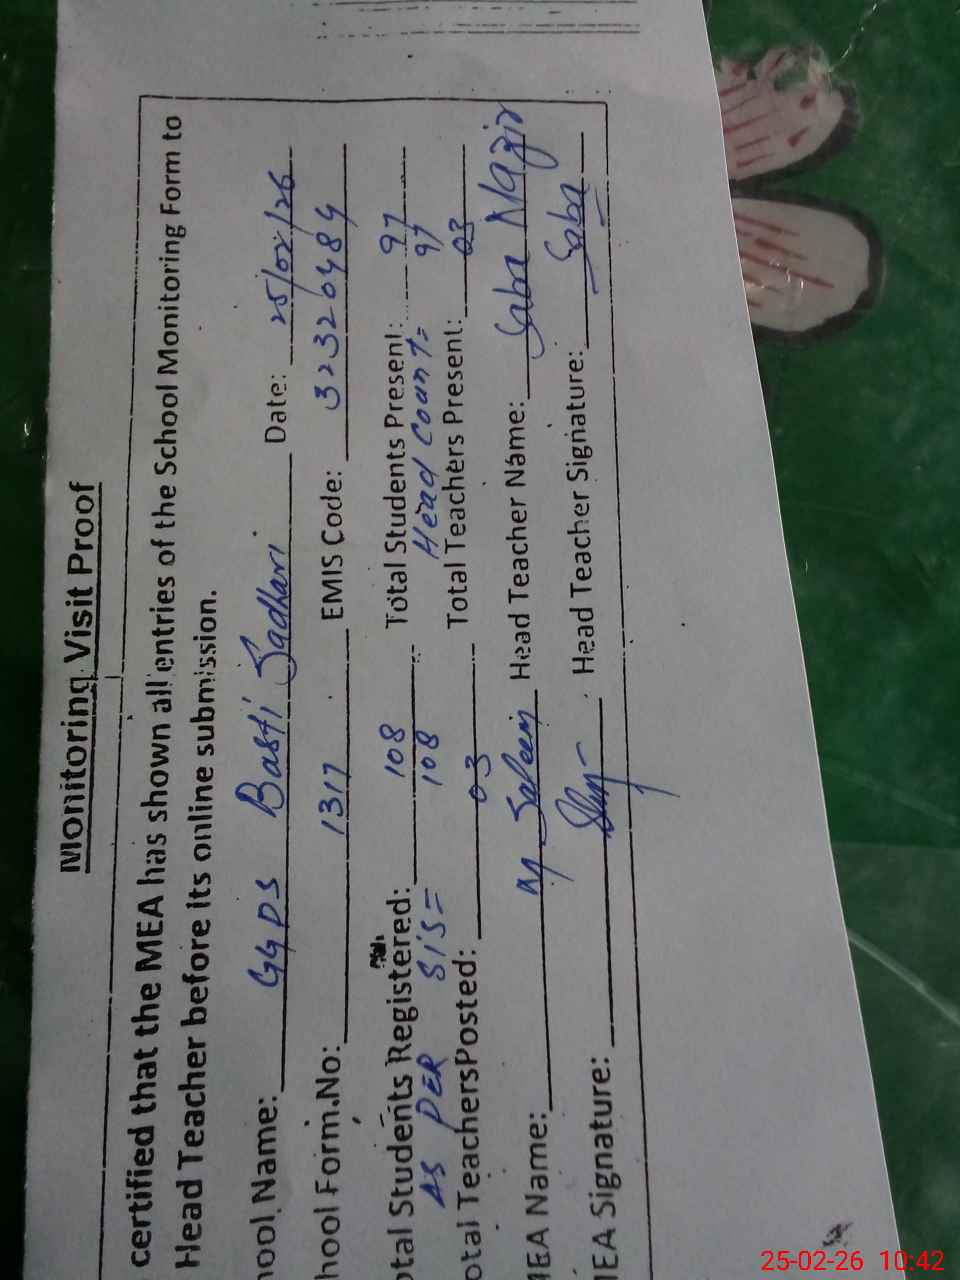 Monitoring Visit Proof
certified that the MEA has shown all entries of the School Monitoring Form to
Head Teacher before its online submission.
hool Name: GGPS Basti Sadhari Date: 25/02/26
hool Form.No: 1317 EMIS Code: 32320484
otal Students Registered: 108 Total Students Present: 97
AS PER SIS= 108 Head Count= 97
otal TeachersPosted: 03 Total Teachers Present: 03
MEA Name: M Saleem Head Teacher Name: Saba Nazir
MEA Signature: Head Teacher Signature: Saba
25-02-26 10:42